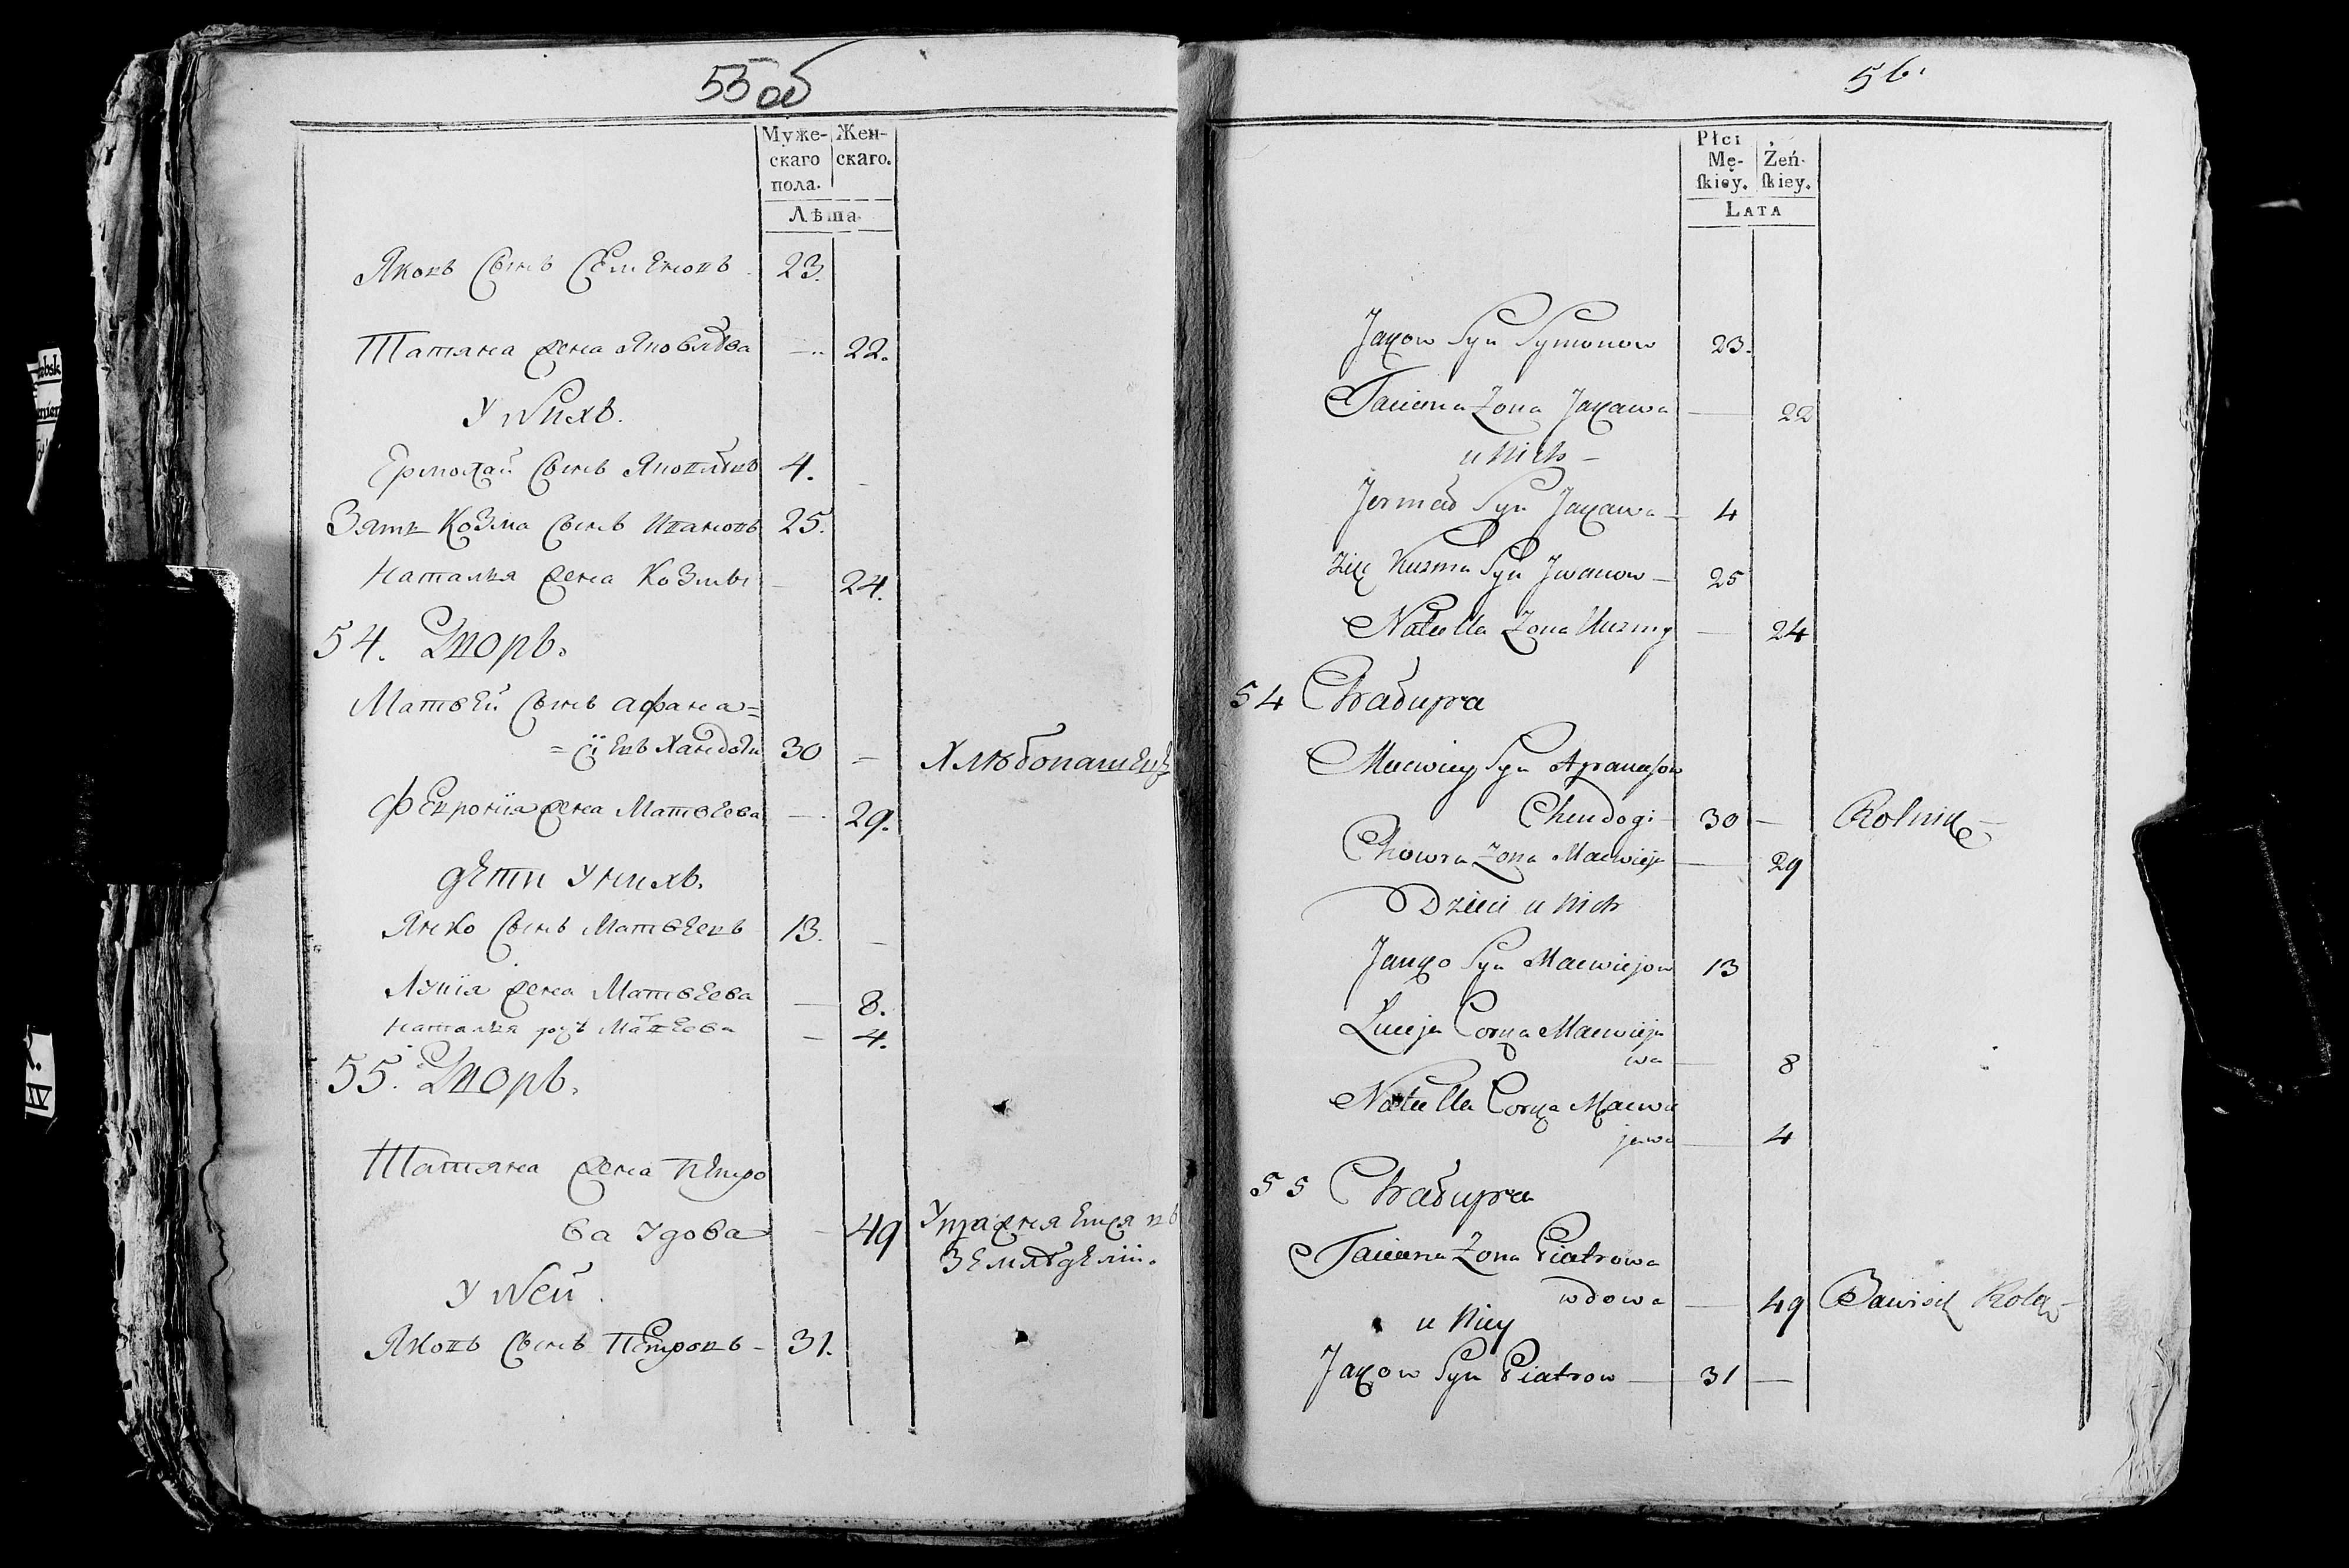 55 об
Муже-
скаго
пола.
Жен-
скаго.
Лѣта
Яковъ Сынъ Семеновъ 23.
Татяна жена Яковлева — 22.
У Нихъ.
Ермолай Сынъ Яковлевъ 4. —
Зять Козма Сынъ Ивановъ 25.
Наталья жена Козмы — 24.
54. Дворъ.
Матвей Сынъ Афана=
=сіевъ Хандоги 30 — Хлѣбопашецъ
Февронія жена Матвеева — 29.
дети у нихъ.
Янко Сынъ Матвеевъ 13. —
Луція жена Матвеева — 8.
Наталья Матвеева — 4.
55. Дворъ.
Татяна жена Петро
ва Удова — 49 Упражняется въ
Земледеліи.
У Ней.
Яковъ Сынъ Петровъ — 31.
56.
Płci
Mę-
ſkiey.
Żeń-
ſkiey.
LATA
Jakow Syn Symonow 23.
Taciana Zona Jakawa — 22
u Nich —
Jermoła Syn Jakawa — 4
Zięć Kuzma Syn Jwanow — 25
Natalla Zona Kuzmy — 24
54 Chałupa
Maciwiey Syn Apanasow
Chendogi — 30 — Rolnik —
Chowra Zona Maciwieja — 29
Dzieci u Nich
Janko Syn Maciwiejow 13
Łucyja Corka Maciwieja
wa — 8
Natalla Corka Maciwie
jawa — 4
55 Chałupa
Taciana Zona Piatrowa
wdowa — 49 Bawi się Rolą —
u Niey
Jakow Syn Piatrow — 31 —